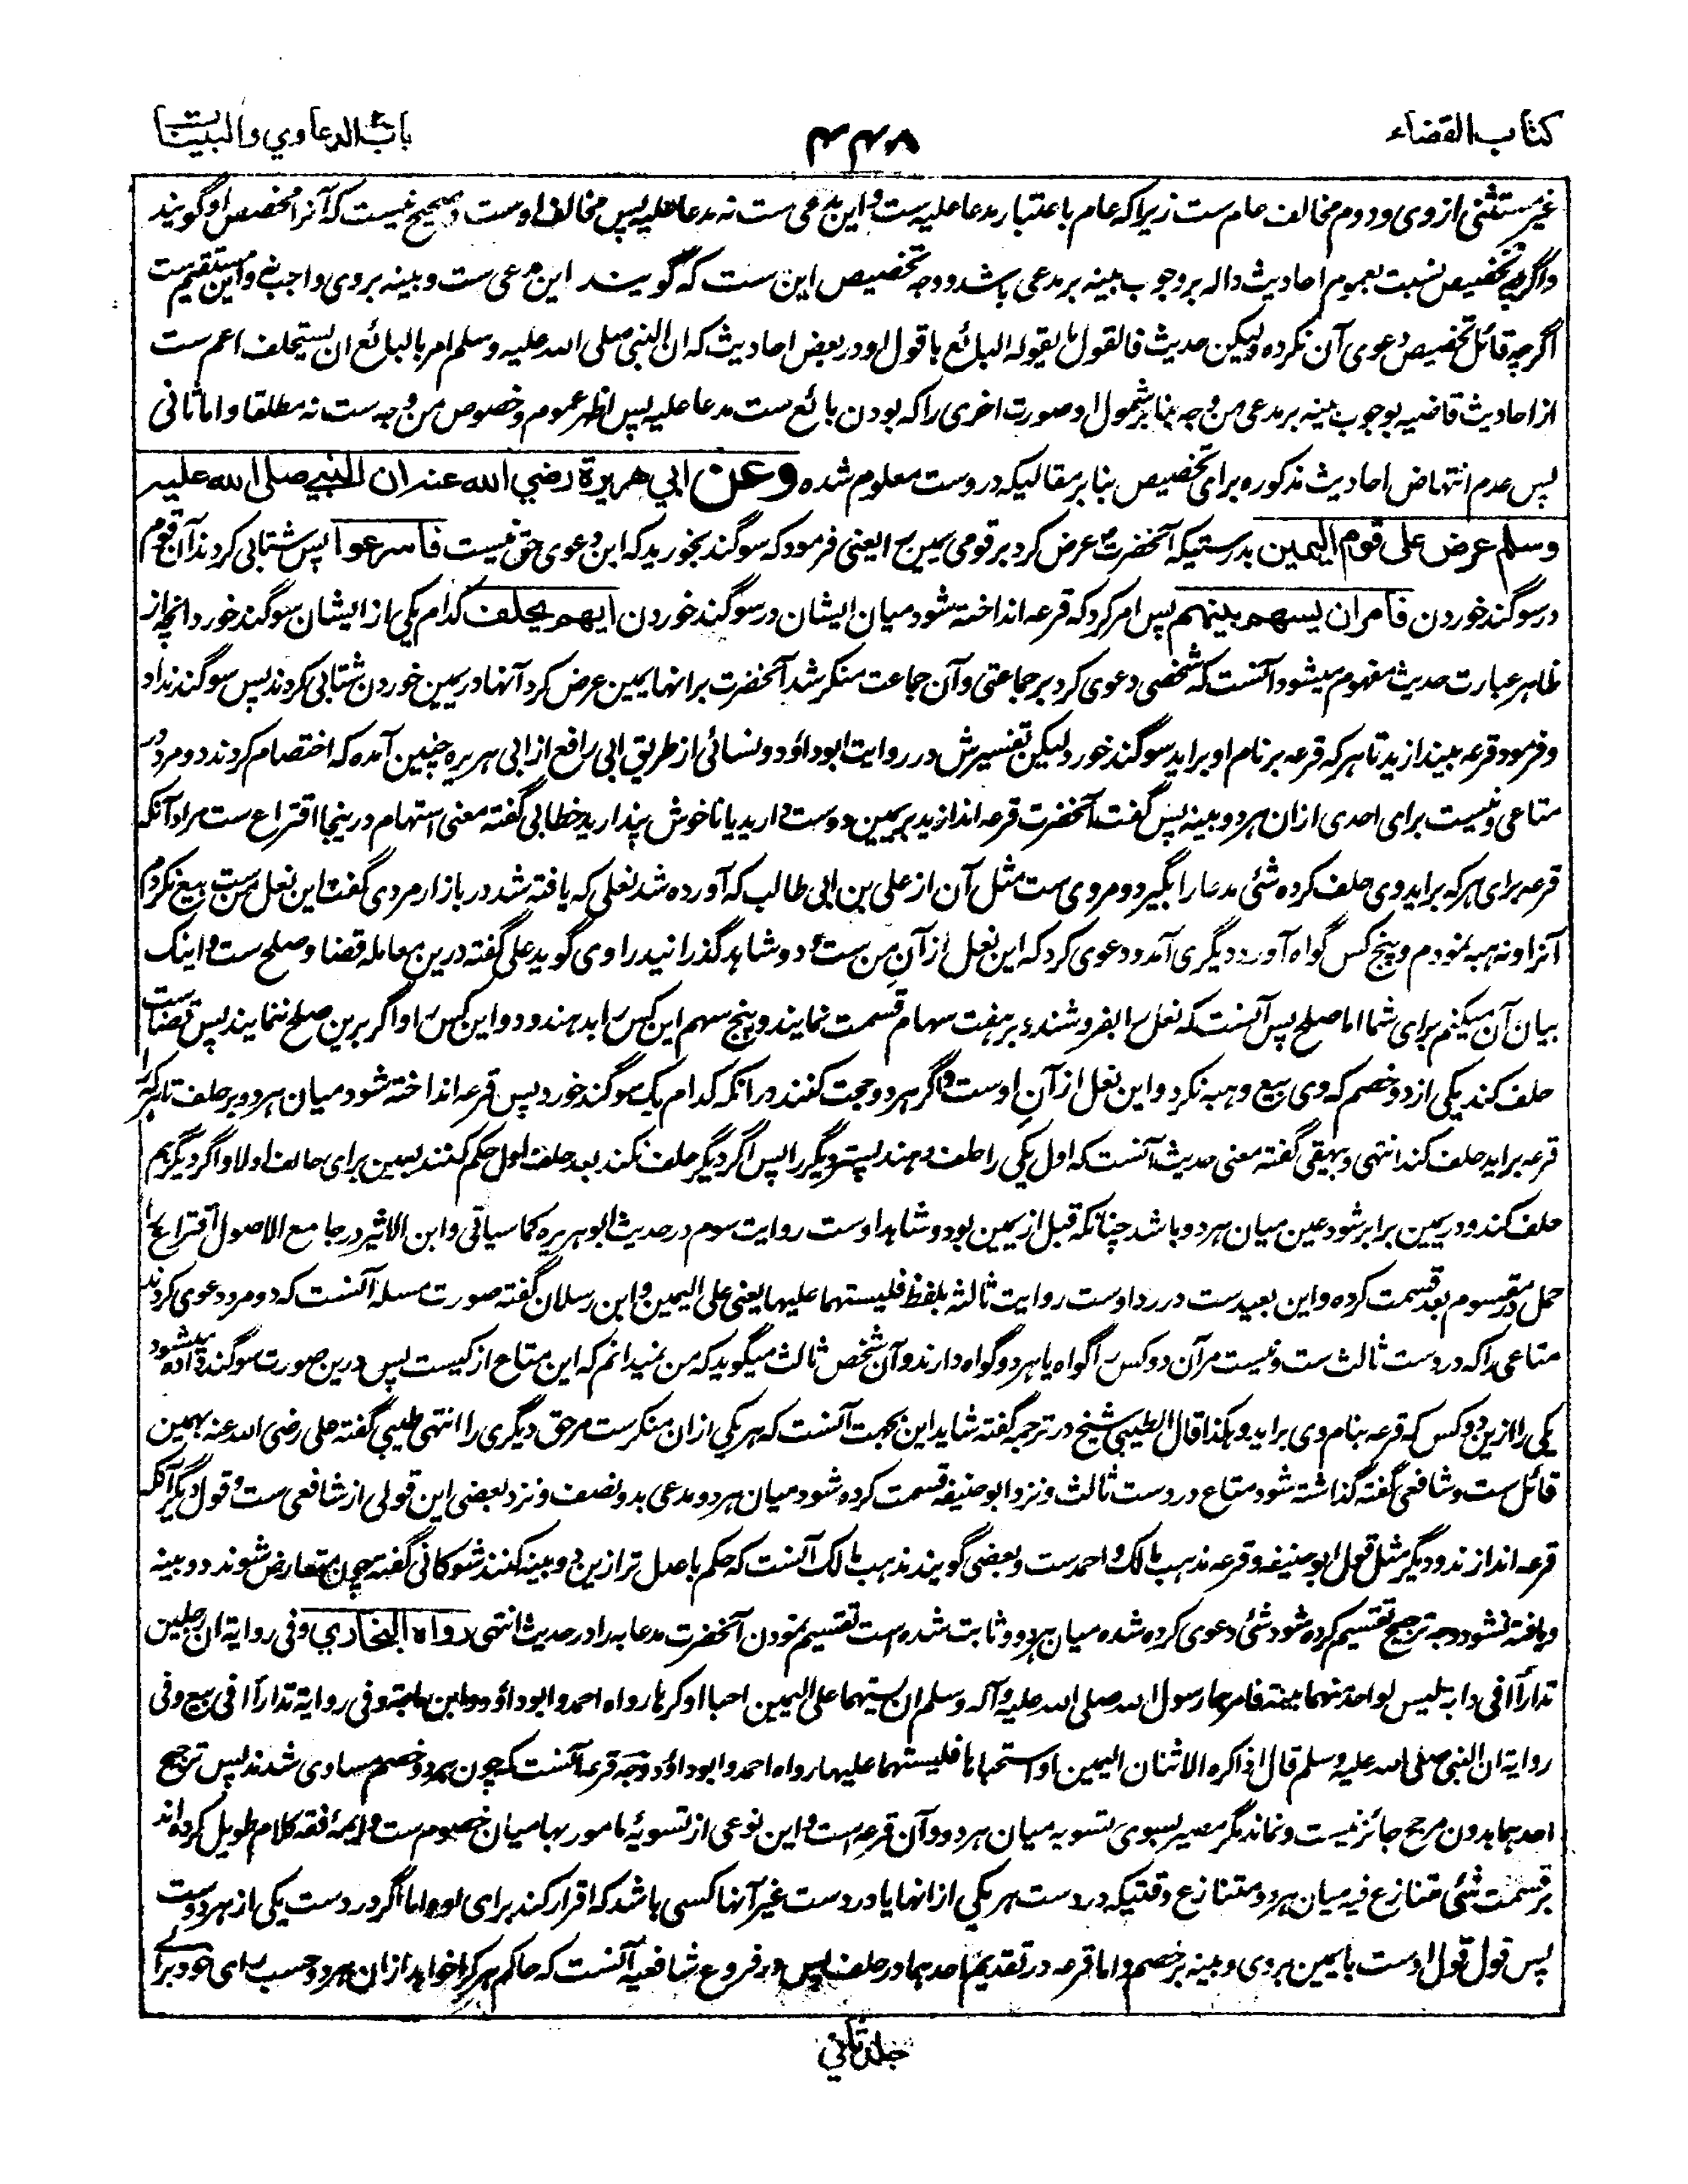 كتاب القضاء
۷۴۴
باب الدعاوي والبينات
غیر مستثنی از وی و دوم مخالف عام ست زیرا که عام باعتبار مدعا علیه ست و این مدعی ست نه مدعا علیه پس مخالف اوست و صحیح نیست که آنرا مخصص او گویند
و اگرچه تخصیص نسبت بعموم احادیث داله بر وجوب بینه بر مدعی باشد و وجه تخصیص این ست که گویند این مدعی ست و بینه بر وی واجب نے و این مستقیم ست
اگرچه قائل تخصیص دعوی آن نکرده ولیکن حدیث فالقول ما یقوله البائع با قول او در بعض احادیث که ان النبی صلی الله علیه وسلم امر بالبائع ان یستحلف اعم ست
از احادیث قاضیه بوجوب بینه بر مدعی من وجه بنا بر شمول او صورت اخری را که بودن بائع ست مدعا علیه پس اظهر عموم و خصوص من وجه ست نه مطلقا و اما ثانی
پس عدم انتهاض احادیث مذکوره برای تخصیص بنا بر مقالیکه دروست معلوم شده وعن ابي هريرة رضي الله عنه ان النبي صلى الله عليه
وسلم عرض على قوم اليمين بدرستیکه آنحضرت عرض کرد بر قومی یمین را یعنی فرمود که سوگند بخورید که این دعوی حق نیست فاسرعوا پس شتابی کردند آن قوم
در سوگند خوردن فامر ان يسهم بينهم پس امر کرد که قرعه انداخته شود میان ایشان در سوگند خوردن ايهم يحلف کدام یکی از ایشان سوگند خورد و آنچه از
ظاهر عبارت حدیث مفهوم میشود آنست که شخصی دعوی کرد بر جماعتی و آن جماعت منکر شد آنحضرت بر انها یمین عرض کرد آنها در یمین خوردن شتابی کردند پس سوگند نداد
و فرمود قرعه بیندازید تا هر که قرعه بر نام او براید سوگند خورد لیکن تفسیرش در روایت ابوداؤد و نسائی از طریق ابی رافع از ابی هریره چنین آمده که اختصام کردند دو مرد در
متاعی و نیست برای احدی ازان هر دو بینه پس گفت آنحضرت قرعه اندازید بر یمین دوست دارید یا ناخوش پندارید خطابی گفته معنی استهام درینجا اقتراع ست مراد آنکه
قرعه برای هر که براید وی حلف کرده شئی مدعا را بگیرد و مروی ست مثل آن از علی بن ابی طالب که آورده شد نعلی که یافته شد در بازار مردی گفت این نعل من ست بیع نکردم
آنرا و نه هبه نمودم و پنج کس گواه آورد و دیگری آمد و دعوی کرد که این نعل از آنِ من ست و دو شاهد گذرانید راوی گوید علی گفته درین معامله قضا و صلح ست و اینک
بیان آن میکنم برای شما اما صلح پس آنست که نعل را بفروشند و بر هفت سهام قسمت نمایند و پنج سهم این کس را بدهند و دو این کس را و اگر برین صلح ننمایند پس قضا ست
حلف کند یکی از دو خصم که وی بیع و هبه نکرد و این نعل از آنِ اوست و اگر هر دو حجت کنند در آنکه کدام یک سوگند خورد پس قرعه انداخته شود میان هر دو بر حلف تا هر کرا
قرعه براید حلف کند انتهی و بیهقی گفته معنی حدیث آنست که اول یکی را حلف دهند پستر دیگر را پس اگر دیگر حلف نکند بعد حلف اول حکم کنند بعین برای حالف اولا و اگر دیگر هم
حلف کند و در یمین برابر شود عین میان هر دو باشد چنانکه قبل از یمین بود و شاهد اوست روایت سوم در حدیث ابو هریره کما سیاتی و ابن الاثیر در جامع الاصول اقتراع را
حمل در مقسوم بعد قسمت کرده و این بعید ست در رد اوست روایت ثالثه بلفظ فلیستهما علیها یعنی علی الیمین و ابن رسلان گفته صورت مسئله آنست که دو مرد دعوی کردند
متاعی را که در دست ثالث ست و نیست مر آن دو کس را گواه یا هر دو گواه دارند و آن شخص ثالث میگوید که من نمیدانم که این متاع از کیست پس درین صورت سوگند داده میشود
یکی را ازین دو کس که قرعه بنام وی براید و هکذا قال الطیبی شیخ در ترجمه گفته شاید این بجهت آنست که هر یکی ازان منکرست مر حق دیگری را انتهی طیبی گفته علی رضی الله عنه بهمین
قائل ست و شافعی گفته گذاشته شود متاع در دست ثالث و نزد ابو حنیفه قسمت کرده شود میان هر دو مدعی بدو نصف و نزد بعضی این قولی از شافعی ست و قول دیگر آنکه
قرعه اندازند و دیگر مثل قول ابو حنیفه و قرعه مذهب مالک و احمد ست و بعضی گویند مذهب مالک آنست که حکم باعدل تر ازین دو بینه کنند شوکانی گفته چون متعارض شوند دو بینه
و یافته نشود وجه ترجیح تقسیم کرده شود شئی دعوی کرده شده میان هر دو و ثابت شده است تقسیم نمودن آنحضرت مدعا به را در حدیث انتهی رواه البخاري و فی روایة ان رجلین
تدارآ فی دابة لیس لواحد منهما بینة فامرهما رسول الله صلی الله علیه وآله وسلم ان یستهما علی الیمین احبا او کرها رواه احمد و ابوداؤد و ابن ماجة و فی روایة تدارآ فی بیع و فی
روایة ان النبی صلی الله علیه وسلم قال اذا کره الاثنان الیمین او استحباها فلیستهما علیها رواه احمد و ابوداؤد و وجه قرعه آنست که چون هر دو خصم مساوی شدند پس ترجیح
احدهما بدون مرجح جائز نیست و نماند مگر مصیر بسوی تسویه میان هر دو و آن قرعه است و این نوعی از تسویهٔ مامور بها میان خصوم ست و ایمهٔ فقه کلام طویل کرده اند
بر قسمت شئی متنازع فیه میان هر دو متنازع وقتیکه در دست هر یکی از انها یا در دست غیر آنها کسی باشد که اقرار کند برای او و اما اگر در دست یکی از هر دوست
پس قول قول اوست با یمین بر وی و بینه بر خصم و اما قرعه در تقدیم احدهما در حلف پس در فروع شافعیه آنست که حاکم هر کرا خواهد ازان هر دو حسب رای خود برای
جلد ثاني